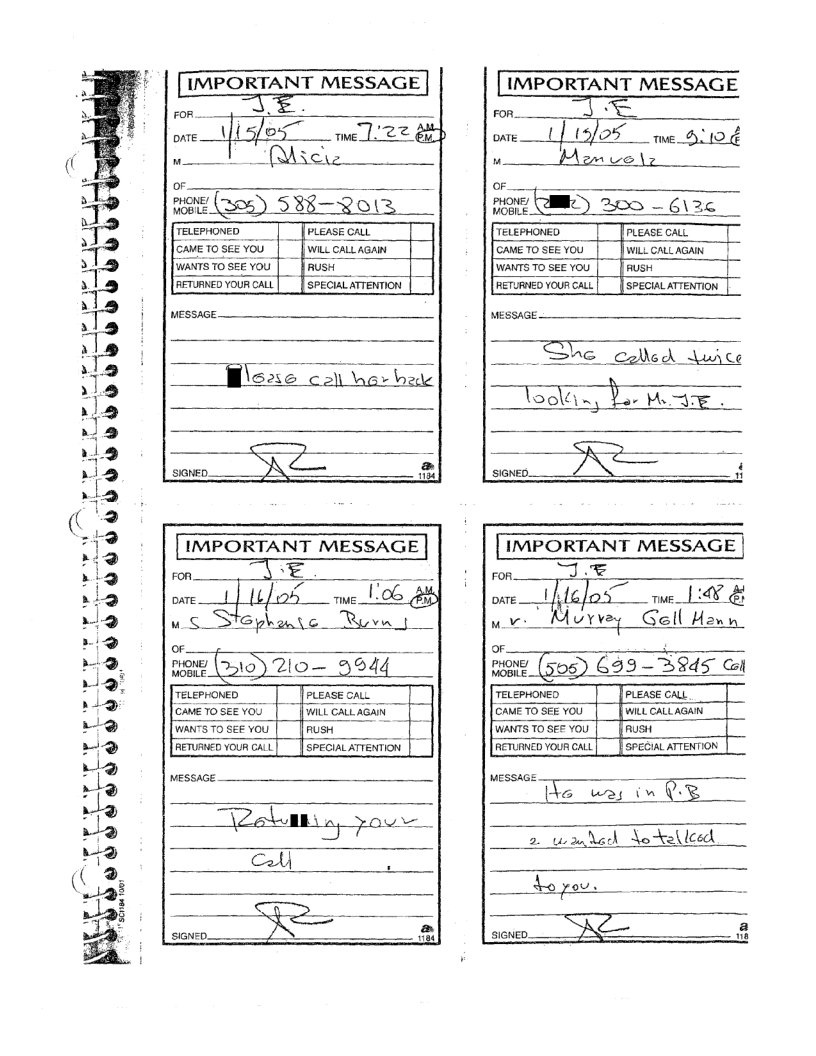 IMPORTANT MESSAGE
FOR J.E.
DATE 1/15/05 TIME 7:22 A.M. P.M.
M Alicia
OF
PHONE/ MOBILE (305) 588-8013
TELEPHONED PLEASE CALL
CAME TO SEE YOU WILL CALL AGAIN
WANTS TO SEE YOU RUSH
RETURNED YOUR CALL SPECIAL ATTENTION
MESSAGE
lease call her back
SIGNED
1184
IMPORTANT MESSAGE
FOR J.E
DATE 1/15/05 TIME 9:10
M Manuela
OF
PHONE/ MOBILE (2 2) 300-6136
TELEPHONED PLEASE CALL
CAME TO SEE YOU WILL CALL AGAIN
WANTS TO SEE YOU RUSH
RETURNED YOUR CALL SPECIAL ATTENTION
MESSAGE
She called twice
looking for Mr. J.E.
SIGNED
11
IMPORTANT MESSAGE
FOR J.E.
DATE 1/16/05 TIME 1:06 A.M. P.M.
M S Stephanie Burns
OF
PHONE/ MOBILE (310) 210-9944
TELEPHONED PLEASE CALL
CAME TO SEE YOU WILL CALL AGAIN
WANTS TO SEE YOU RUSH
RETURNED YOUR CALL SPECIAL ATTENTION
MESSAGE
Retu in your
Call
SIGNED
1184
IMPORTANT MESSAGE
FOR J.E
DATE 1/16/05 TIME 1:48
M r. Murray Gell Mann
OF
PHONE/ MOBILE (505) 699-3845 Cell
TELEPHONED PLEASE CALL
CAME TO SEE YOU WILL CALL AGAIN
WANTS TO SEE YOU RUSH
RETURNED YOUR CALL SPECIAL ATTENTION
MESSAGE
He was in P.B
a wanted to talked
to you.
SIGNED
118
SC1184 10/01